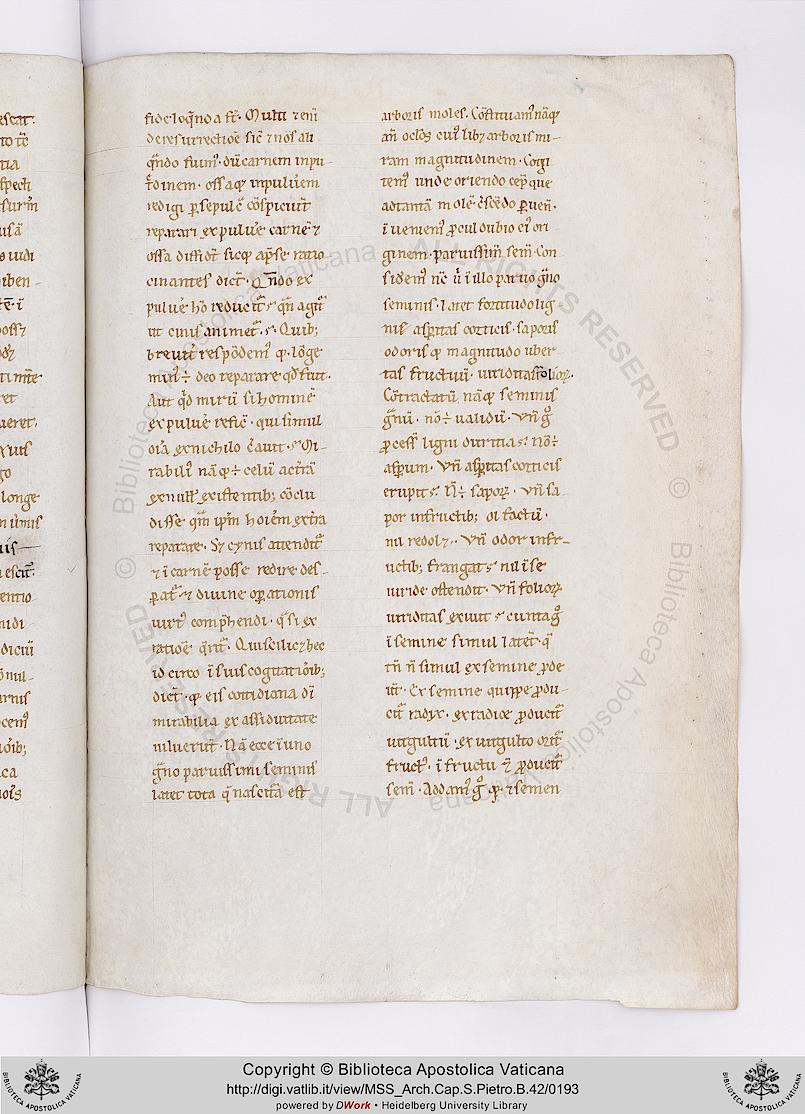 fideloq̄ndo a ft̄. Multi ⁊ eni᷑
de resurrectiōe sic̄ ⁊ nos ali
q̄ndo fuim᷒. dū carnem in pu
t̄dinem. ossaq; in pulueem
redigi ꝑ sepulc̄ cōspiciūt
reparari ex puluē carnē ⁊
ossa diffidūt sicq; ap̄ se ratio
cinantes dicūt. Qn̄do ex
puluē hō reducit᷑. qn̄ agit᷑
ut cinis animet᷑. Quib;
breuit̄ respōdem᷒ q; lōge
min᷒ ÷ deo reparare qd̄ fuit.
Aut qd̄ mirū si hominē
ex puluē refic̄. qui simul
oīa ex nichilo c̄auit. Mi-
rabili᷒ nāq; ÷ celū ac t̄rā
ex null᷒ existentib; cōclu
disse. qm̄ ip̄m hoiēm ex t̄ra
reparare. Sꝫ cynis attendit᷑
⁊ ī carnē posse redire des-
ꝑat᷑ ⁊ diuine oꝑationis
uirt᷒ comp̄hendi. q̄si ex
ratiōe q̄rit᷑. Qui scilicꝫ hec
id circo ī suis cogitatiōib;
dicūt. q; eis cottidiana dī
mirabilia ex assiduitate
uiluerūt. Nā ecce ī uno
g̃no paruissimi seminis
latet tota q̄ nascit̄a est
arboris moles. Cōstituam᷒ nāq;
an̄ oclōs cui᷒libꝫ arboris mi-
ram magnitudinem. Cogi
tem᷒ unde oriendo cep̄ que
ad tantā molē c̄scēdo ꝑuen̄.
īueniem᷒ ꝓcul dubio ei᷒ ori-
ginem. paruissim̄ sem̄. Con
sidem᷒ nc̄ u᷑ ī illo paruo g̃no
seminis. latet fortitudo lig-
ni᷒ asꝑitas corticis. saporis
odoris q; magnitudo uber
tas fructuū. uiriditas folioꝝ.
Cōtractatū nāq; seminis
g̃nū. nō ÷ ualidū. Vn̄ g̊
ꝓcess̄ ligni duritia. nō ÷
asꝑum. Vn̄ asꝑitas corticis
erupit. N̄ ÷ sapoꝝ. Vn̄ sa
por in fructib; olfactū.
nil redolꝫ. Vn̄ odor in fr-
uctib; frangat. nil ī se
uiride ostendit. Vn̄ folioꝝ
uiriditas exiuit. cuncta g̊
ī semine simul latēt. q̄
tn̄ n̄ simul ex semine ꝓde
ūt. Ex semine quippe ꝓdu-
cit᷑ radyx. ex radice ꝓducit᷑
uirgultū. ex uirgulto orit᷑
fruct᷒. ī fructu ⁊ ꝓducit᷑
sem̄. Addam᷒ g̊ q; ⁊ semen
Copyright © Biblioteca Apostolica Vaticana
http://digi.vatlib.it/view/MSS_Arch.Cap.S.Pietro.B.42/0193
powered by DWork • Heidelberg University Library